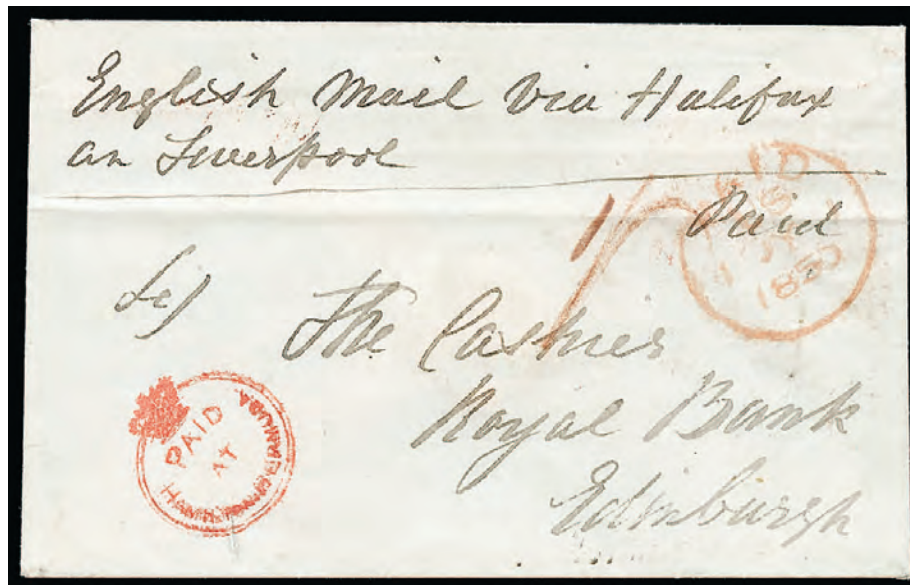 English Mail Via Halifax
an Liverpool
Paid
1/
The Cashier
Royal Bank
Edinburgh
PAID
AT
HAMILTON BERMUDA
1850